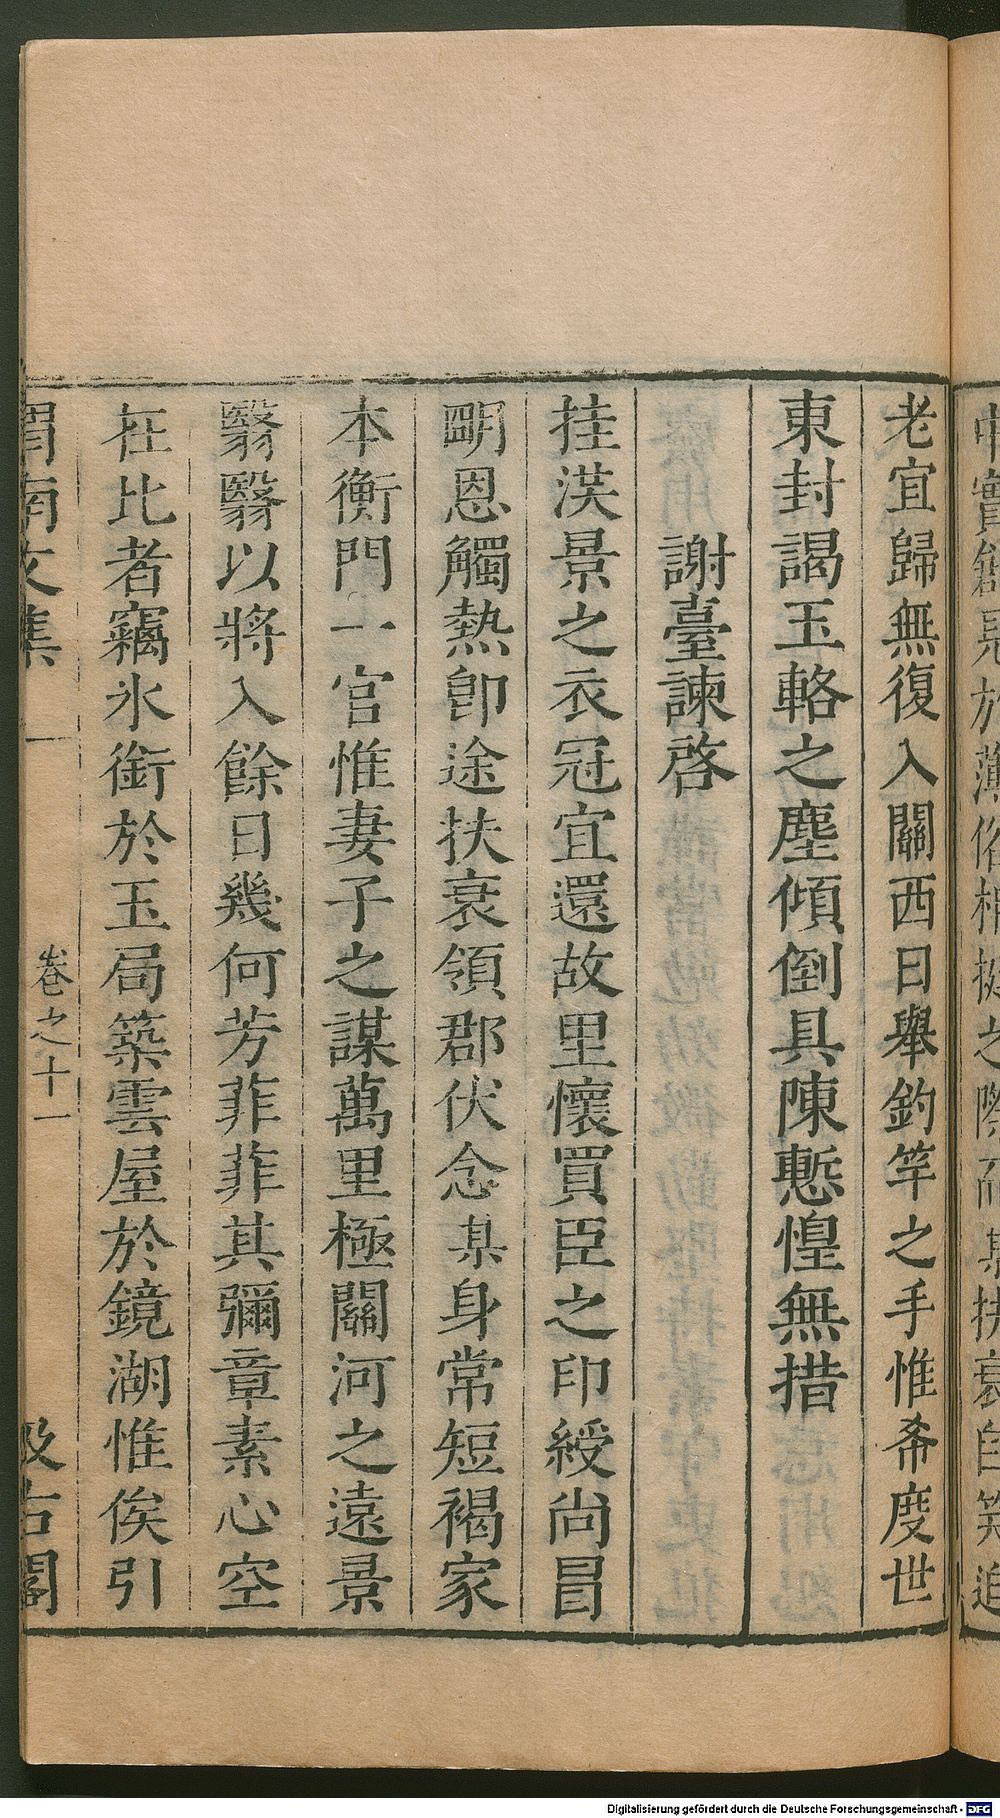 老宜歸無復入關西日舉釣竿之手惟希度世
東封謁玉輅之塵傾倒具陳慙惶無措
謝臺諫啓
挂漢景之衣冠宜還故里懷買臣之印綬尚冒
明恩觸熱卽途扶衰領郡伏念某身常短褐家
本衡門一官惟妻子之謀萬里極關河之遠景
翳翳以將入餘日幾何芳菲菲其彌章素心空
在比者竊氷銜於玉局築雲屋於鏡湖惟俟引
渭南文集
卷之十一
汲古閣
Digitalisierung gefördert durch die Deutsche Forschungsgemeinschaft - DFG